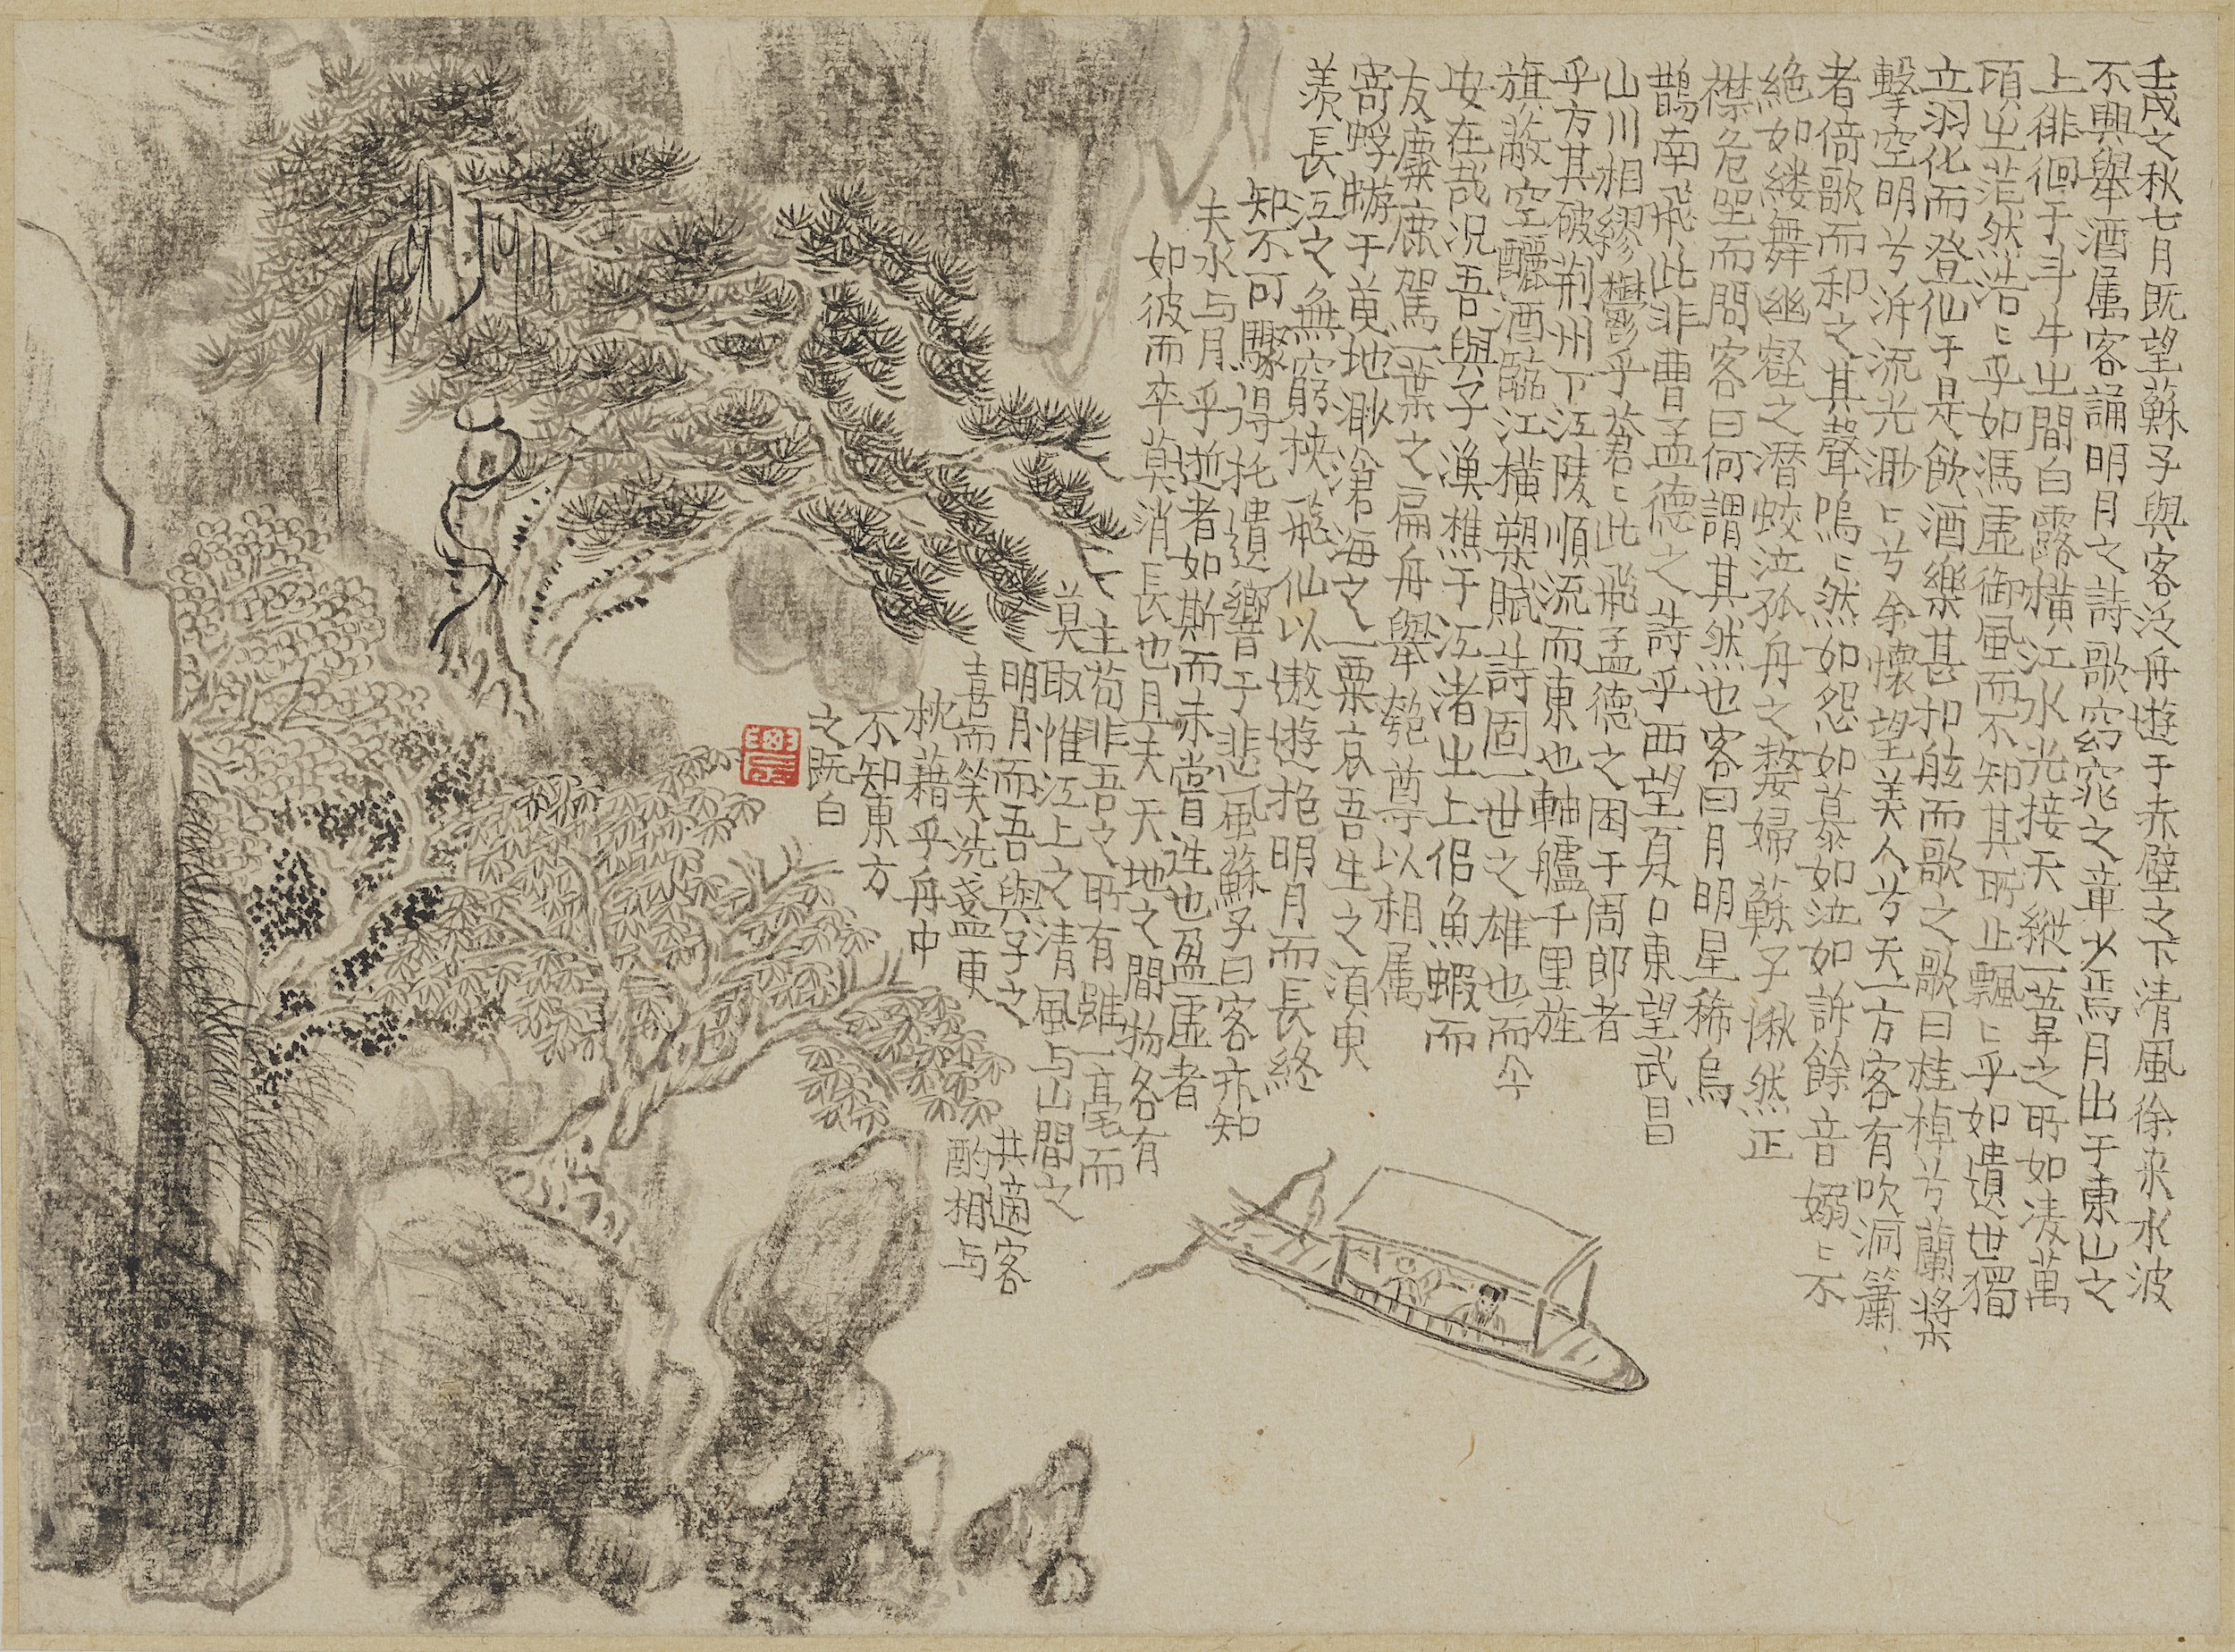 壬戌之秋七月既望蘇子與客泛舟遊于赤壁之下清風徐来水波
不興舉酒属客誦明月之詩歌窈窕之章少焉月出于東山之
上徘徊于斗牛㞢間白露橫江水光接天縱一葦之所如凌萬
頃㞢茫然浩〻乎如馮虛御風而不知其所止飄〻乎如遺世獨
立羽化而登仙于是飲酒樂甚扣舷而歌之歌曰桂棹兮蘭槳
擊空明兮泝流光渺〻兮余懷望美人兮天一方客有吹洞簫
者倚歌而和之其聲嗚〻然如怨如慕如泣如訴餘音嫋〻不
絶如縷舞幽壑之潛蛟泣孤舟之嫠婦蘇子愀然正
襟危坐而問客曰何謂其然也客曰月明星稀烏
鵲南飛此非曹孟德之詩乎西望夏口東望武昌
山川相繆鬱乎蒼〻此飛孟德之困于周郎者
乎方其破荆州下江陵順流而東也軸艫千里旌
旗蔽空釃酒臨江橫槊賦詩固一世之雄也而今
安在哉況吾與子漁樵于江渚㞢上侣魚蝦而
友麋鹿駕一葉之扁舟舉匏尊以相属
寄蜉蝣于萸地渺滄海之一粟哀吾生之須臾
羨長江之無窮挾飛仙以遨遊抱明月而長終
知不可驟得托遺響于悲風蘇子曰客亦知
夫水与月乎逝者如斯而未嘗往也盈虛者
如彼而卒莫消長也且夫天地之間物各有
主苟非吾之所有雖一毫而
莫取惟江上之清風与山間之
明月而吾與子之共適客
喜而笑洗盞更酌相与
枕藉乎舟中
不知東方
之既白